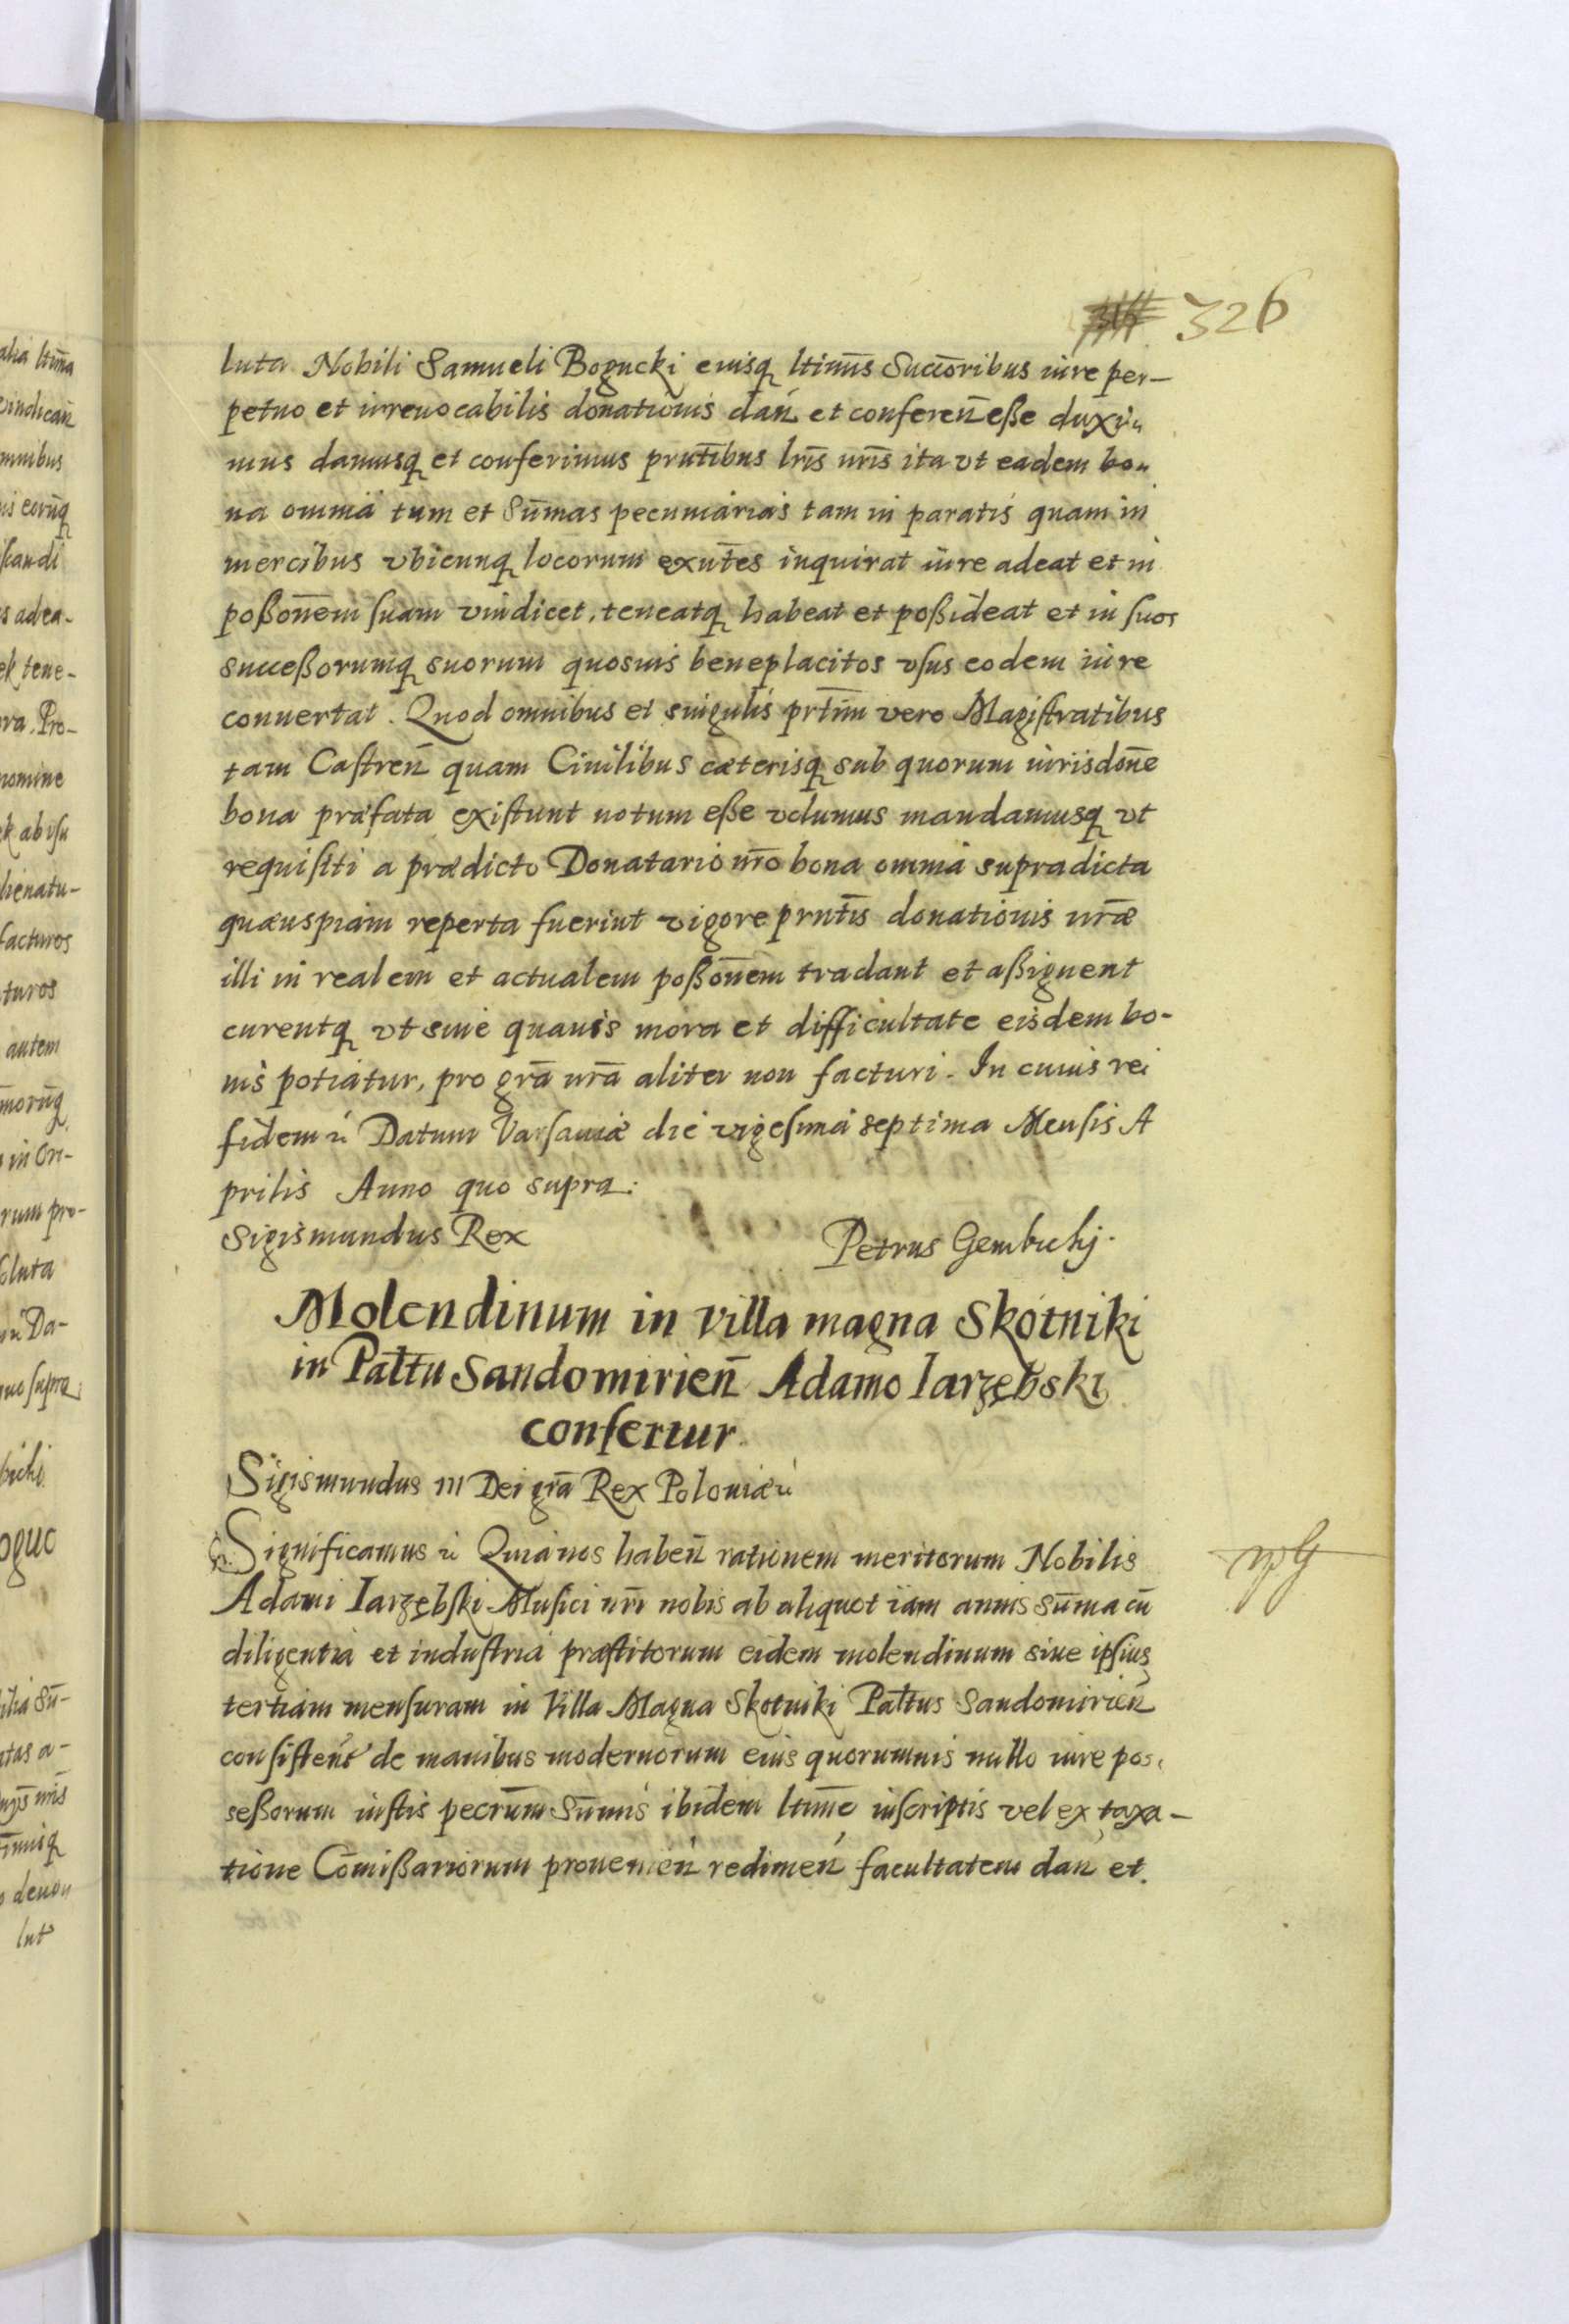 326
luta Nobili Samueli Bogucki eiusq ltim̄s Succ̄oribus iure per-
petuo et irreuocabilis donationis dan̄ et conferen̄ eße duxi-
mus damusq et conferimus prn̄tibus lr̄is nr̄is ita vt eadem bo-
na omnia tum et Sum̄as pecuniarias tam in paratis quam in
mercibus vbicunq locorum exn̄tes inquirat iure adeat et in
poßon̄em suam vindicet, teneatq habeat et poßideat et in suos
succeßorumq suorum quosuis beneplacitos vsus eodem iure
conuertat. Quod omnibus et singulis prt̄im vero Magistratibus
tam Castren̄ quam Ciuilibus cæterisq sub quorum iurisdōne
bona præfata existunt notum eße volumus mandamusq vt
requisiti a prædicto Donatario nr̄o bona omnia supradicta
quæuspiam reperta fuerint vigore prn̄tis donationis nr̄æ
illi in realem et actualem poßon̄em tradant et aßignent
curentq vt sine quauis mora et difficultate eisdem bo-
nis potiatur, pro gr̄a nr̄a aliter non facturi. In cuius rei
fidem Datum Varsauiæ die vigesima septima Mensis A
prilis Anno quo supra:
Sigismundus Rex Petrus Gembichj.
Molendinum in villa magna Skotniki
in Palt̄u Sandomirien̄ Adamo Iarzębski
confertur
Sigismundus III Dei gr̄a Rex Poloniæ
Significamus Quia nos haben̄ rationem meritorum Nobilis
Adami Iarzębski Musici nr̄i nobis ab aliquot iam annis sum̄a cū
diligentia et industria præstitorum eidem molendinum siue ipsius
tertiam mensuram in Villa Magna Skotniki Palt̄us Sandomirien̄
consisten̄ de manibus modernorum eius quorumuis nullo iure pos-
seßorum iustis pecr̄um Sum̄is ibidem ltim̄e inscriptis vel ex taxa-
tione Com̄ißariorum prouenien̄ redimen̄ facultatem dan̄ et